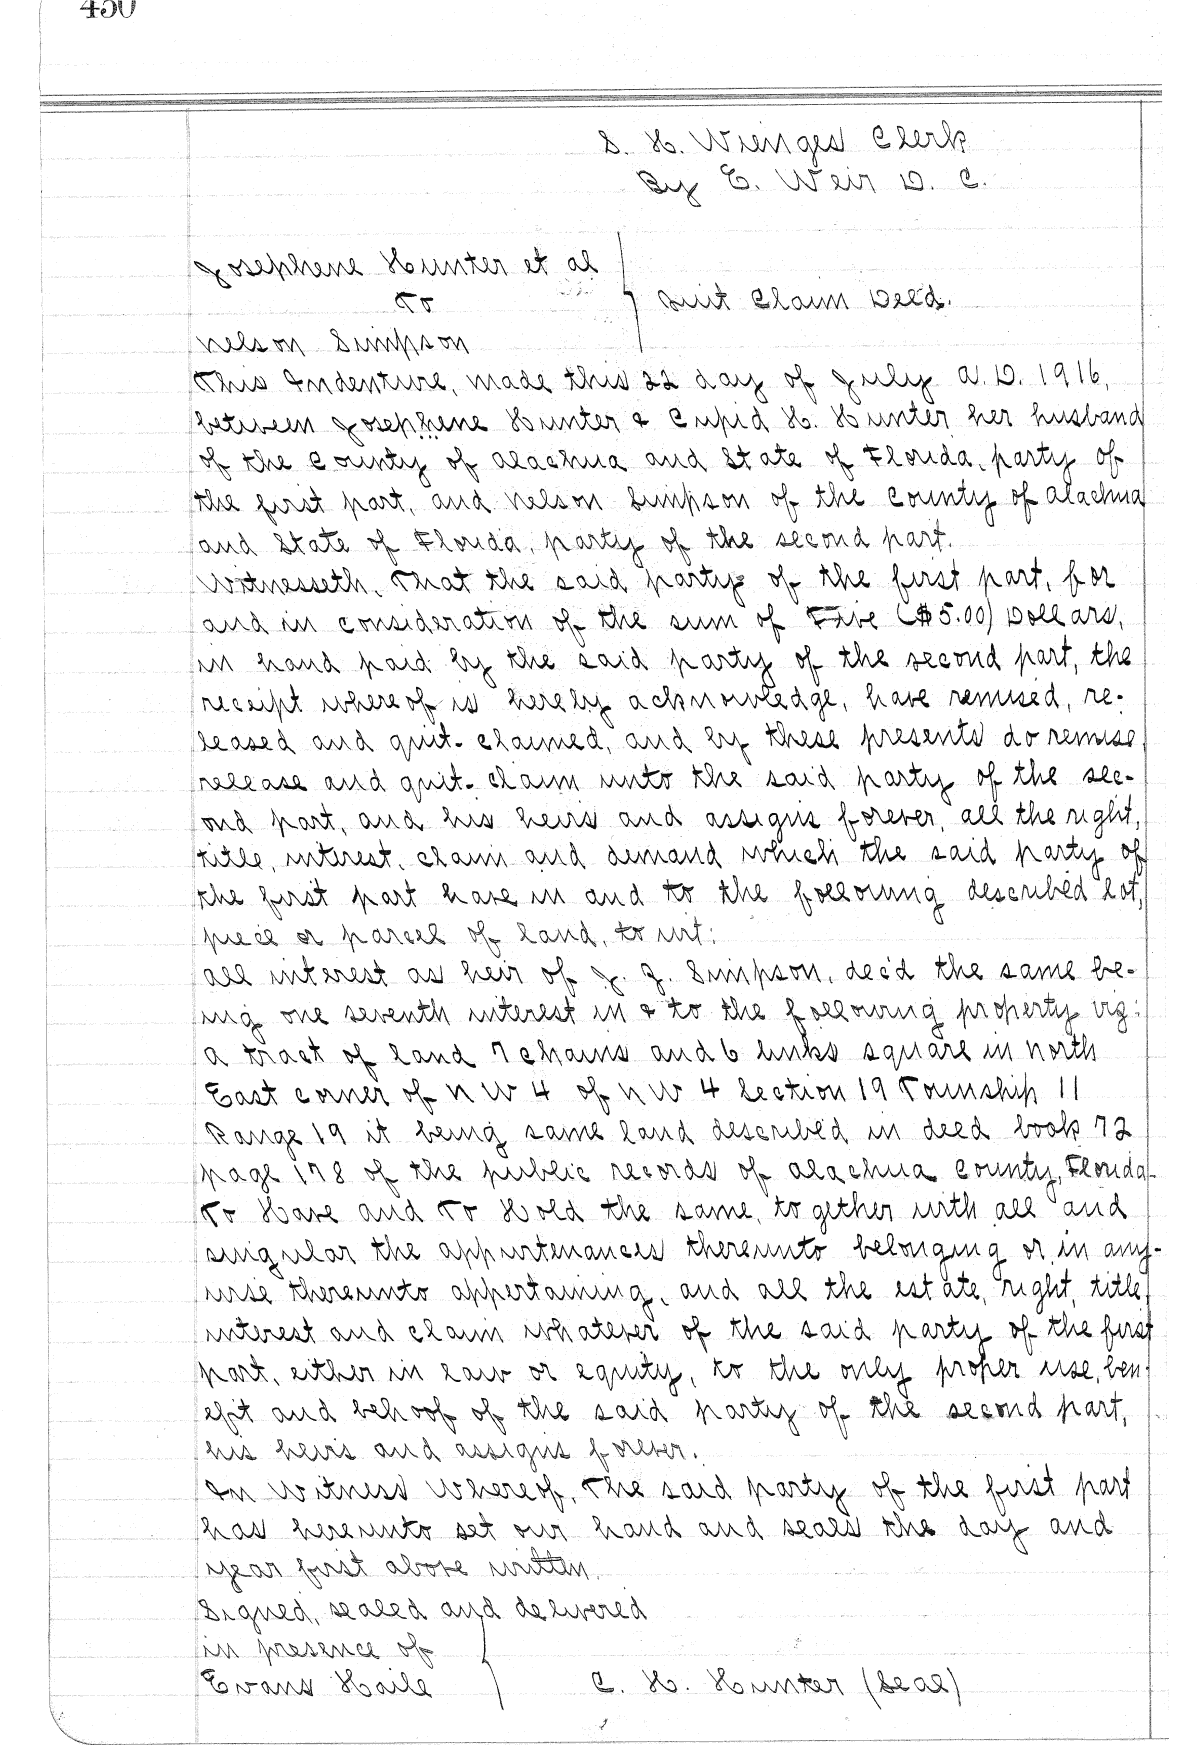 450
S. H. Wienges Clerk
By E. Weir D. C.
Josephene Hunter et al
To
Quit Claim Deed.
Nelson Simpson
This Indenture, made this 22 day of July A. D. 1916,
between Josephene Hunter & Cupid H. Hunter her husband
of the County of Alachua and State of Florida, party of
the first part, and Nelson Simpson of the County of Alachua
and State of Florida, party of the second part.
Witnesseth, That the said party of the first part, for
and in consideration of the sum of Five ($5.00) Dollars,
in hand paid by the said party of the second part, the
receipt whereof is hereby acknowledge, have remised, re-
leased and quit-claimed, and by these presents do remise
release and quit-claim unto the said party of the sec-
ond part, and his heirs and assigns forever, all the right,
title, interest, claim and demand which the said party of
the first part have in and to the following described lot,
piece or parcel of land, to wit:
all interest as heir of J. J. Simpson, dec'd the same be-
ing one seventh interest in & to the following property viz:
A tract of land 7 chains and 6 links square in North
East corner of N W 4 of N W 4 Section 19 Township 11
Range 19 it being same land described in deed book 72
page 178 of the public records of Alachua County, Florida.
To Have and To Hold the same, together with all and
singular the appurtenances thereunto belonging or in any-
wise thereunto appertaining, and all the estate, right, title,
interest and claim whatever of the said party of the first
part, either in law or equity, to the only proper use, ben-
efit and behoof of the said party of the second part,
his heirs and assigns forever.
In Witness Whereof, The said party of the first part
has hereunto set our hand and seals the day and
year first above written.
Signed, sealed and delivered
in presence of
Evans Haile
C. H. Hunter (Seal)